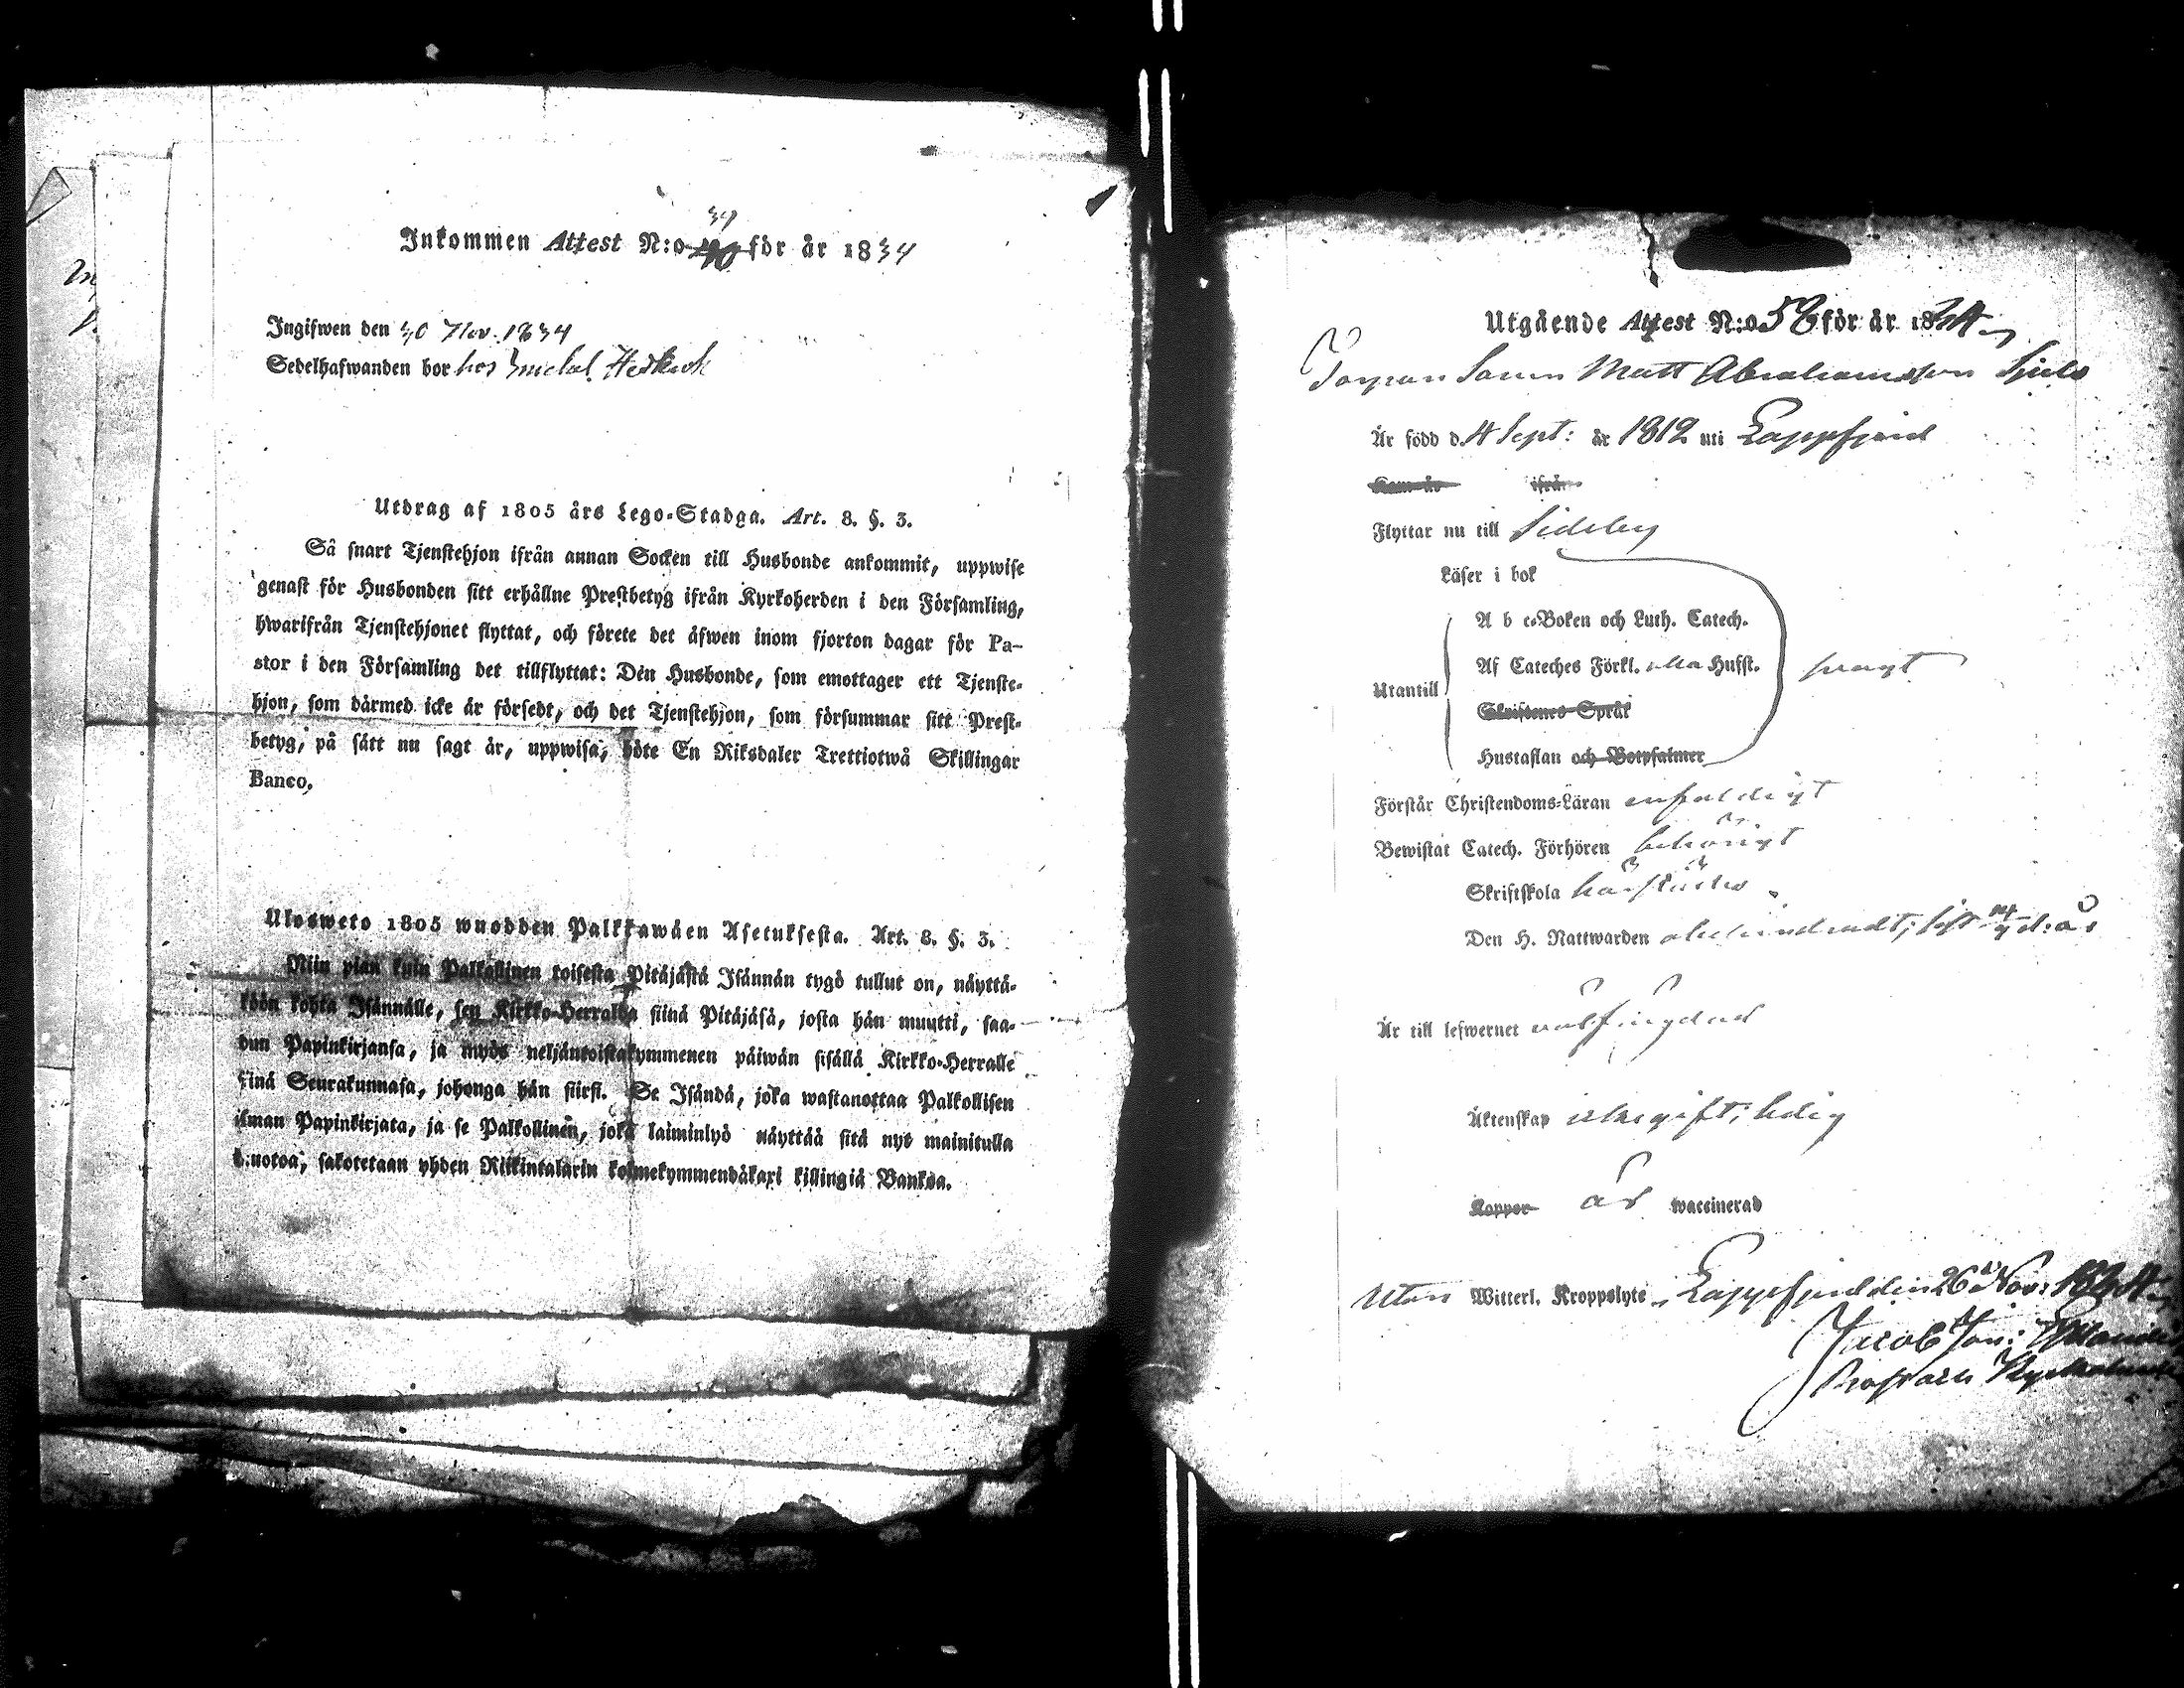 Inkommen Attest N:o 40 39 för år 1834
Ingifwen den 30 Nov. 1834
Sedelhafwanden bor hos
Utdrag af 1805 års Lego-Stadga. Art. 8. §. 3.
Så snart Tjenstehjon ifrån annan Socken till Husbonde ankommit, uppwise
genast för Husbonden sitt erhållne Prestbetyg ifrån Kyrkoherden i den Församling,
hwarifrån Tjenstehjonet flyttat, och förete det äfwen inom fjorton dagar för Pa-
stor i den Församling det tillflyttat: Den Husbonde, som emottager ett Tjenste-
hjon, som därmed icke är försedt, och det Tjenstehjon, som försummar sitt Prest-
betyg, på sätt nu sagt är, uppwisa, böte En Riksdaler Trettiotwå Skillingar
Banco.
Ulosweto 1805 wuodden Palkkawäen Asetuksesta. Art. 8. §. 3.
Niin pian kuin Palkollinen toisesta Pitäjästä Isännän tygö tullut on, näyttä-
köön kohta Isännälle, sen Kirkko-Herralda siinä Pitäjäsä, josta hän muutti, saa-
dun Papinkirjansa, ja myös neljäntoistakymmenen päiwän sisällä Kirkko-Herralle
siinä Seurakunnasa, johonga hän siirsi. Se Isändä, joka wastanottaa Palkollisen
ilman Papinkirjata, ja se Palkollinen, joka laiminlyö näyttää sitä nyt mainitulla
muotoa, sakotetaan yhden Riikintalarin kolmekymmendäkaxi killingiä Bankoa.
Utgående Attest N:o 58 för år 1834
Matt Abrahamsson
Är född d. 4 Sept: år 1812 uti Lappfjerd
Kom år ifrån
Flyttar nu till Sideby
Läser i bok
A b c-Boken och Luth. Catech.
Af Cateches Förkl. Husst.
Utantill
Skriftenes Språk
Hustaflan och Botpsalmer
Förstår Christendoms-Läran enfaldigt
Bewistat Catech. Förhören behörigt
Skriftskola härstädes
Den H. Nattwarden obehindradt;
Är till lefwernet välfrejdad
Äktenskap icke gift; ledig
Koppor är waccinerad
Utan Witterl. Kroppslyte, Lappfjerd den 26 Nov: 1834
Jacob Joh: